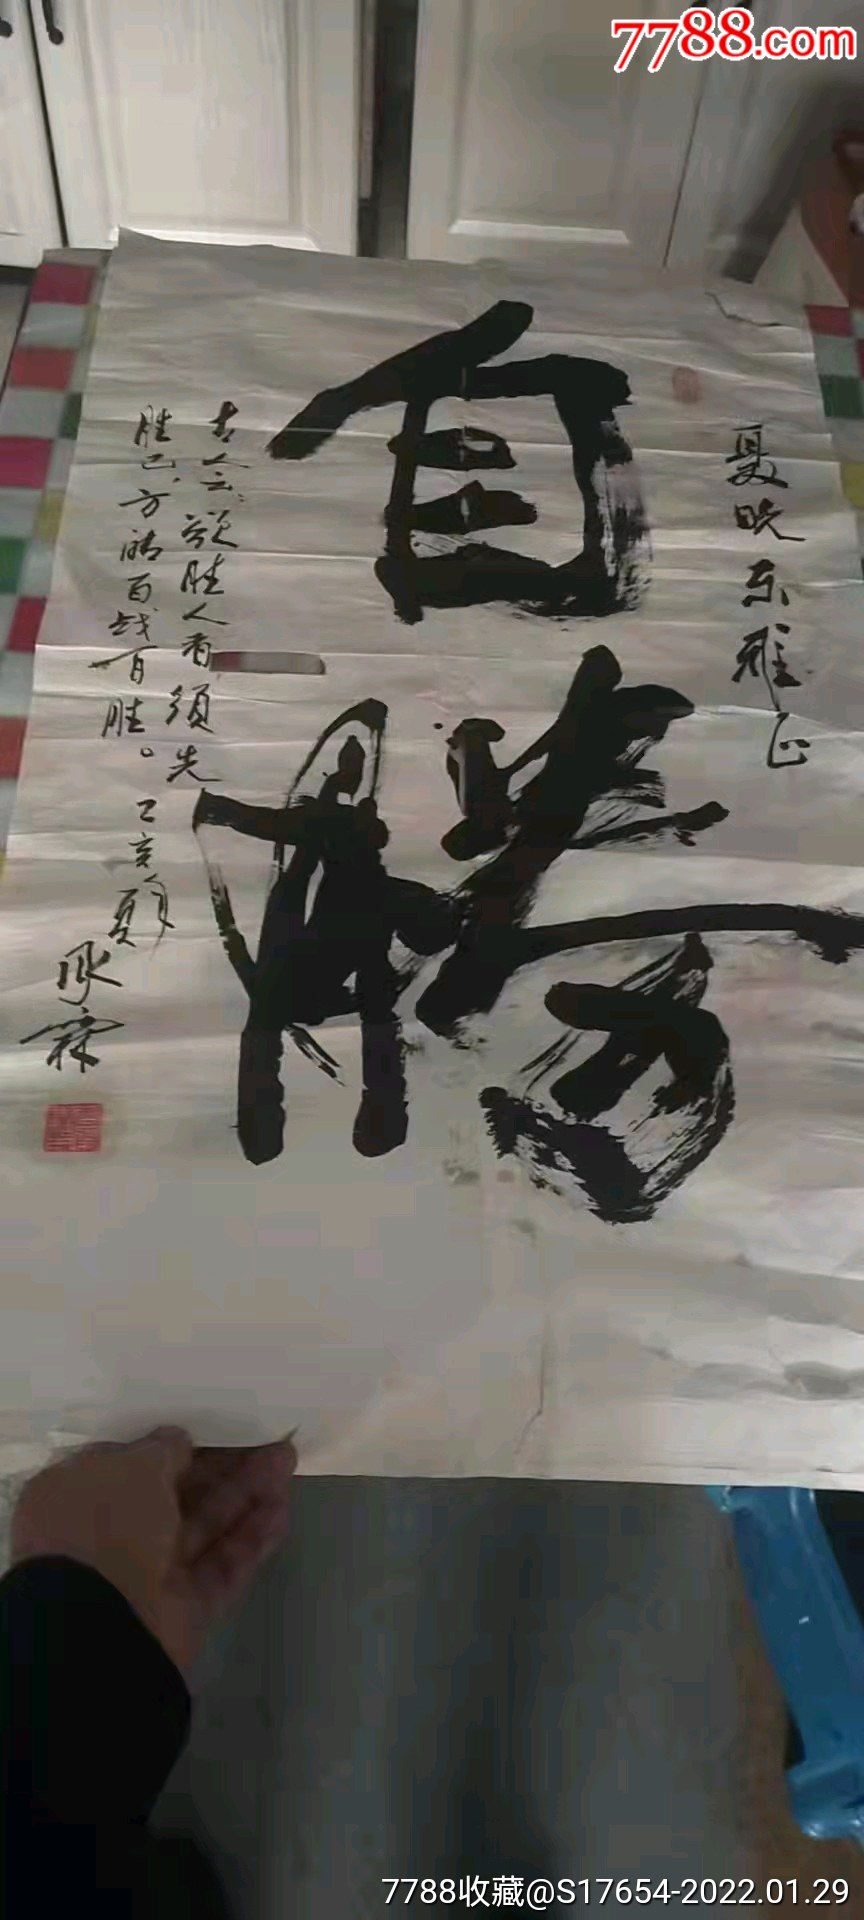 7788.com
夏晓东雅正
自勝
古人云：欲胜人者须先
胜己，方能百战百胜。乙亥年夏
承霖
7788收藏@S17654-2022.01.29